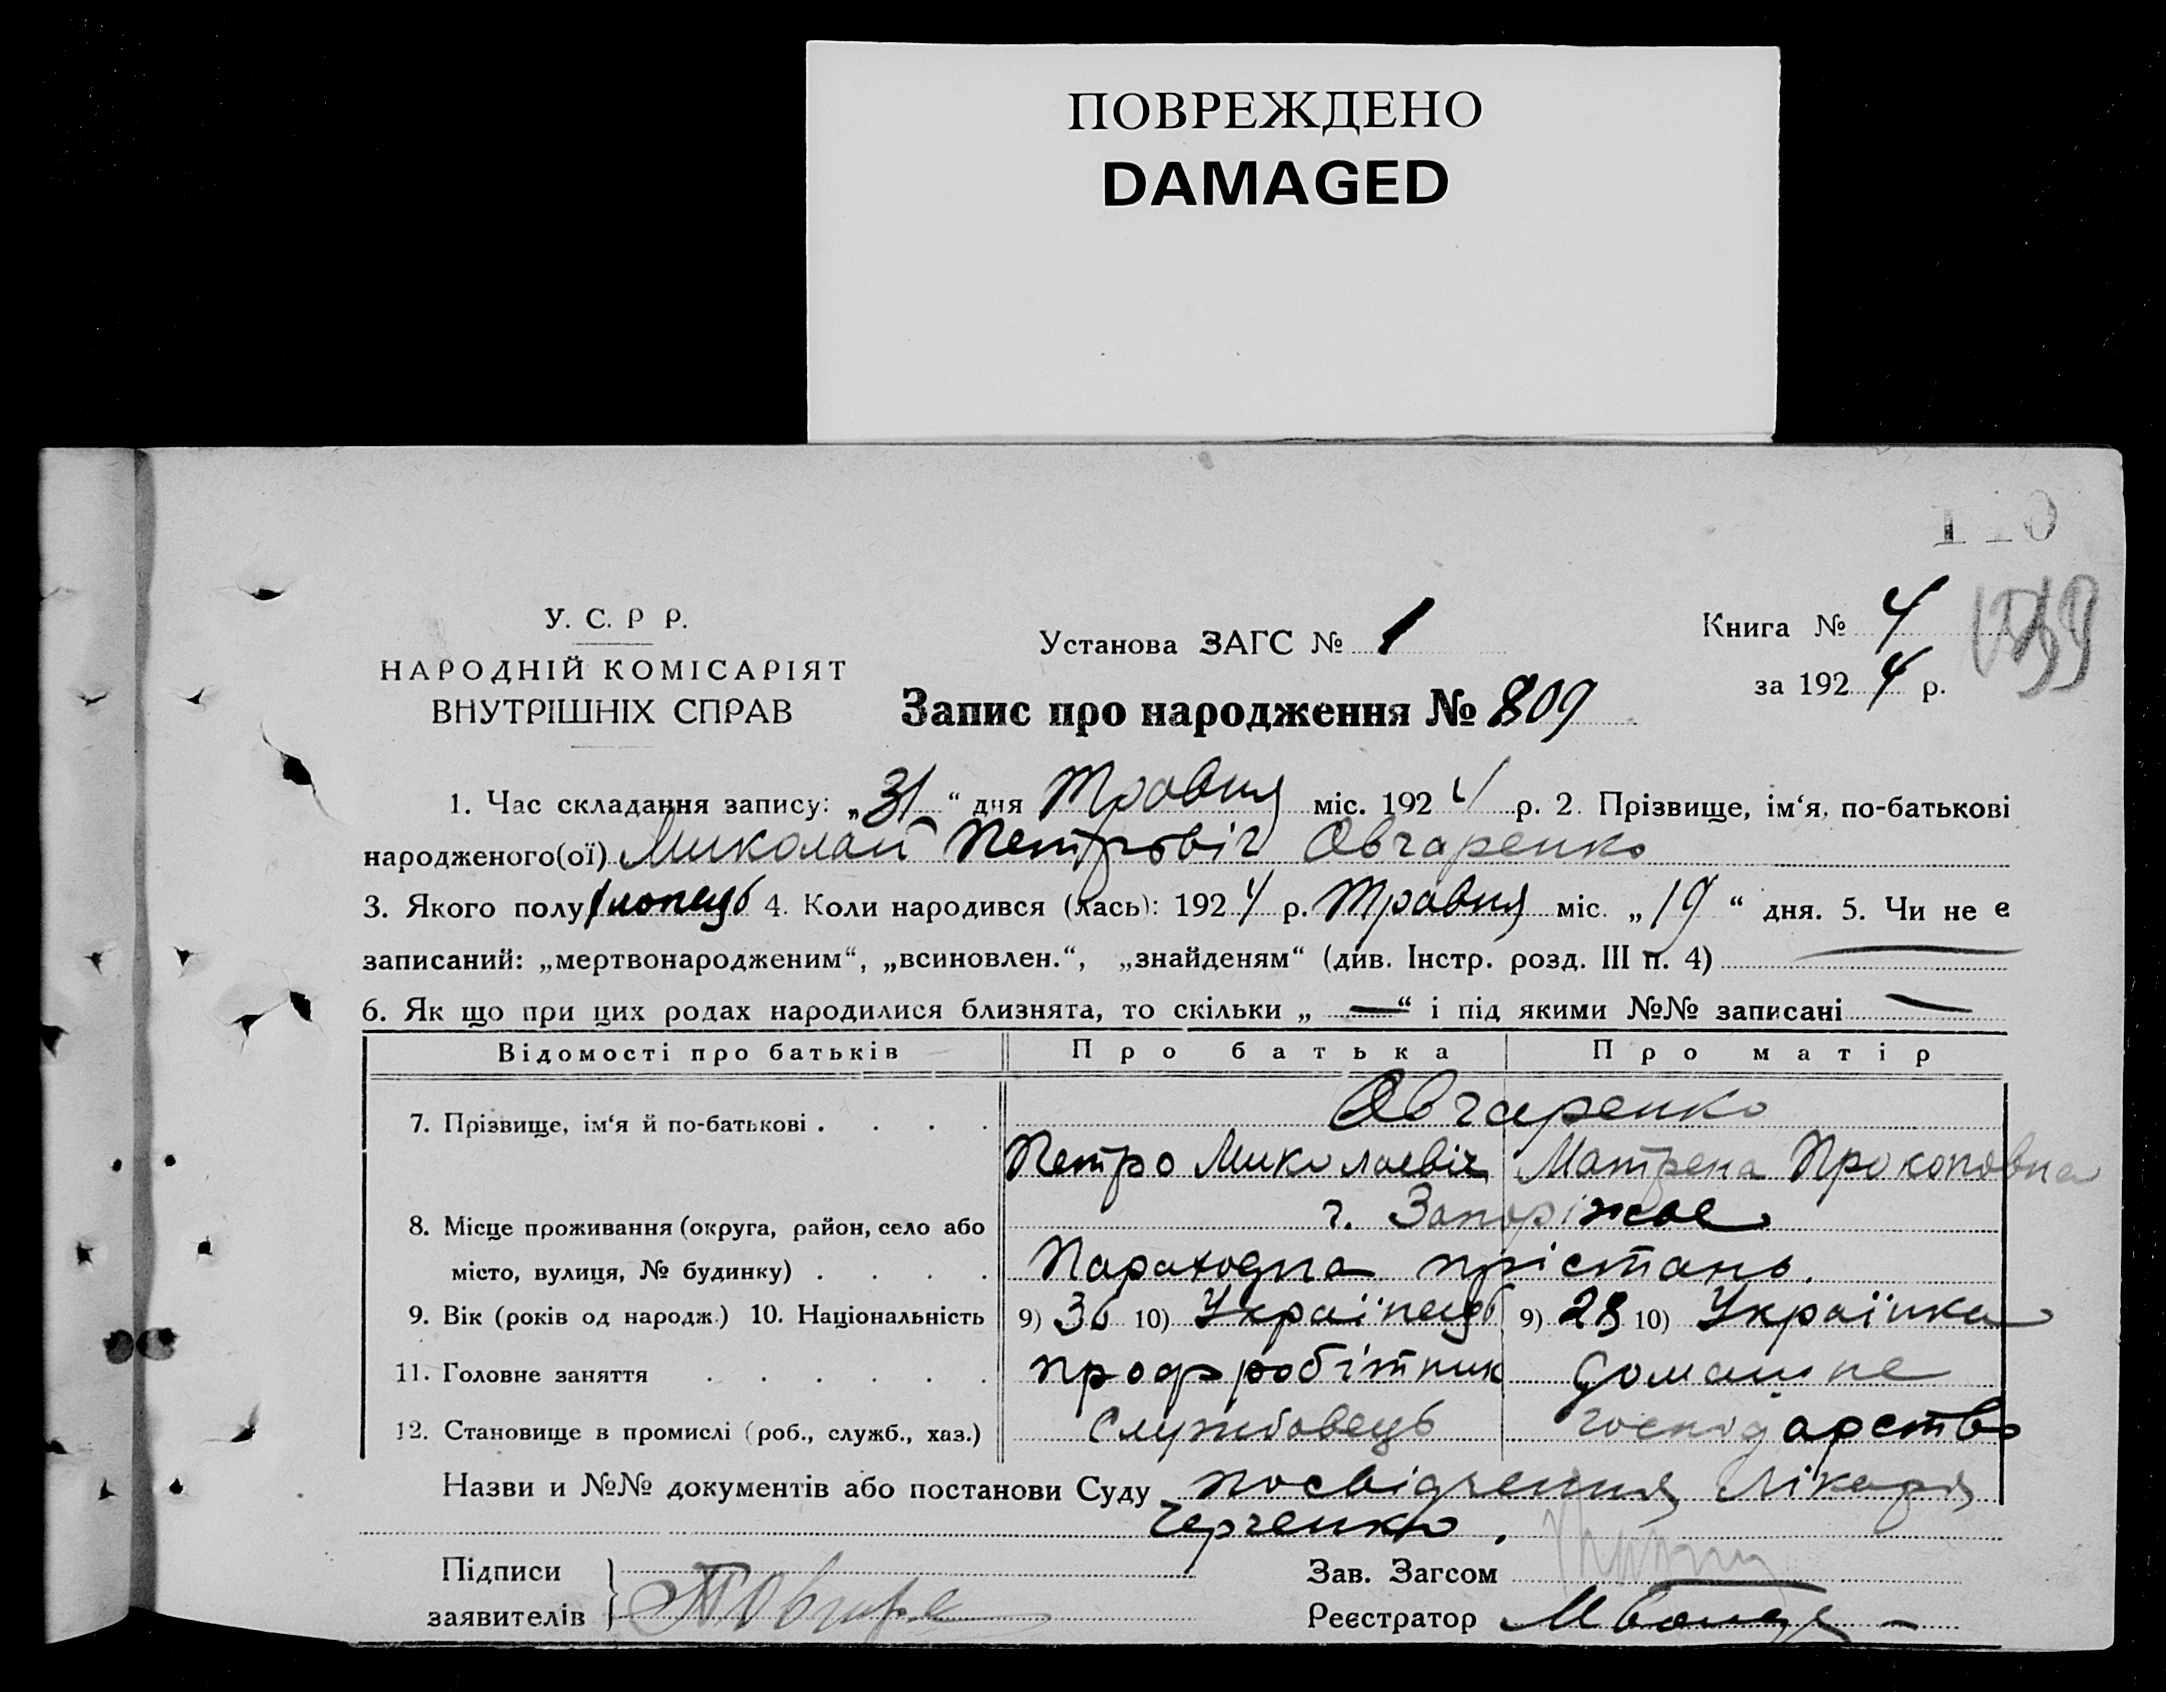 ПОВРЕЖДЕНО
DAMAGED
У. С. Р Р.
НАРОДНІЙ КОМІСАРІЯТ
ВНУТРІШНІХ СПРАВ
Установа ЗАГС № 1
Книга № 4
за 1924 р.
Запис про народження № 809
1. Час складання запису: „31“ дня Травня міс. 1924 р. 2. Прізвище, ім‘я, по-батькові
народженого(ої) Миколай Петровіч Овчаренко
3. Якого полу хлопець 4. Коли народився (лась): 1924 р. Травня міс. „19“ дня. 5. Чи не е
записаний: „мертвонародженим“, „всиновлен.“, „знайденям“ (див. Інстр. розд. III п. 4) —
6. Як що при цих родах народилися близнята, то скільки „—“ і під якими №№ записані —
Відомості про батьків Про батька Про матір
7. Прізвище, ім‘я й по-батькові . . . . Овчаренко
Петро Миколаевіч Матрена Прокоповна
8. Місце проживання (округа, район, село або г. Запоріжье
місто, вулиця, № будинку) . . . . Пароходна прістань.
9. Вік (років од народж.) 10. Національність 9) 36 10) Українець 9) 28 10) Українка
11. Головне заняття . . . . . . проф робітник домашне
12. Становище в промислі (роб., служб., хаз.) Службовець господарство
Назви и №№ документів або постанови Суду посвідчення лікаря
Черченко.
Підписи
заявителів
Зав. Загсом
Реєстратор